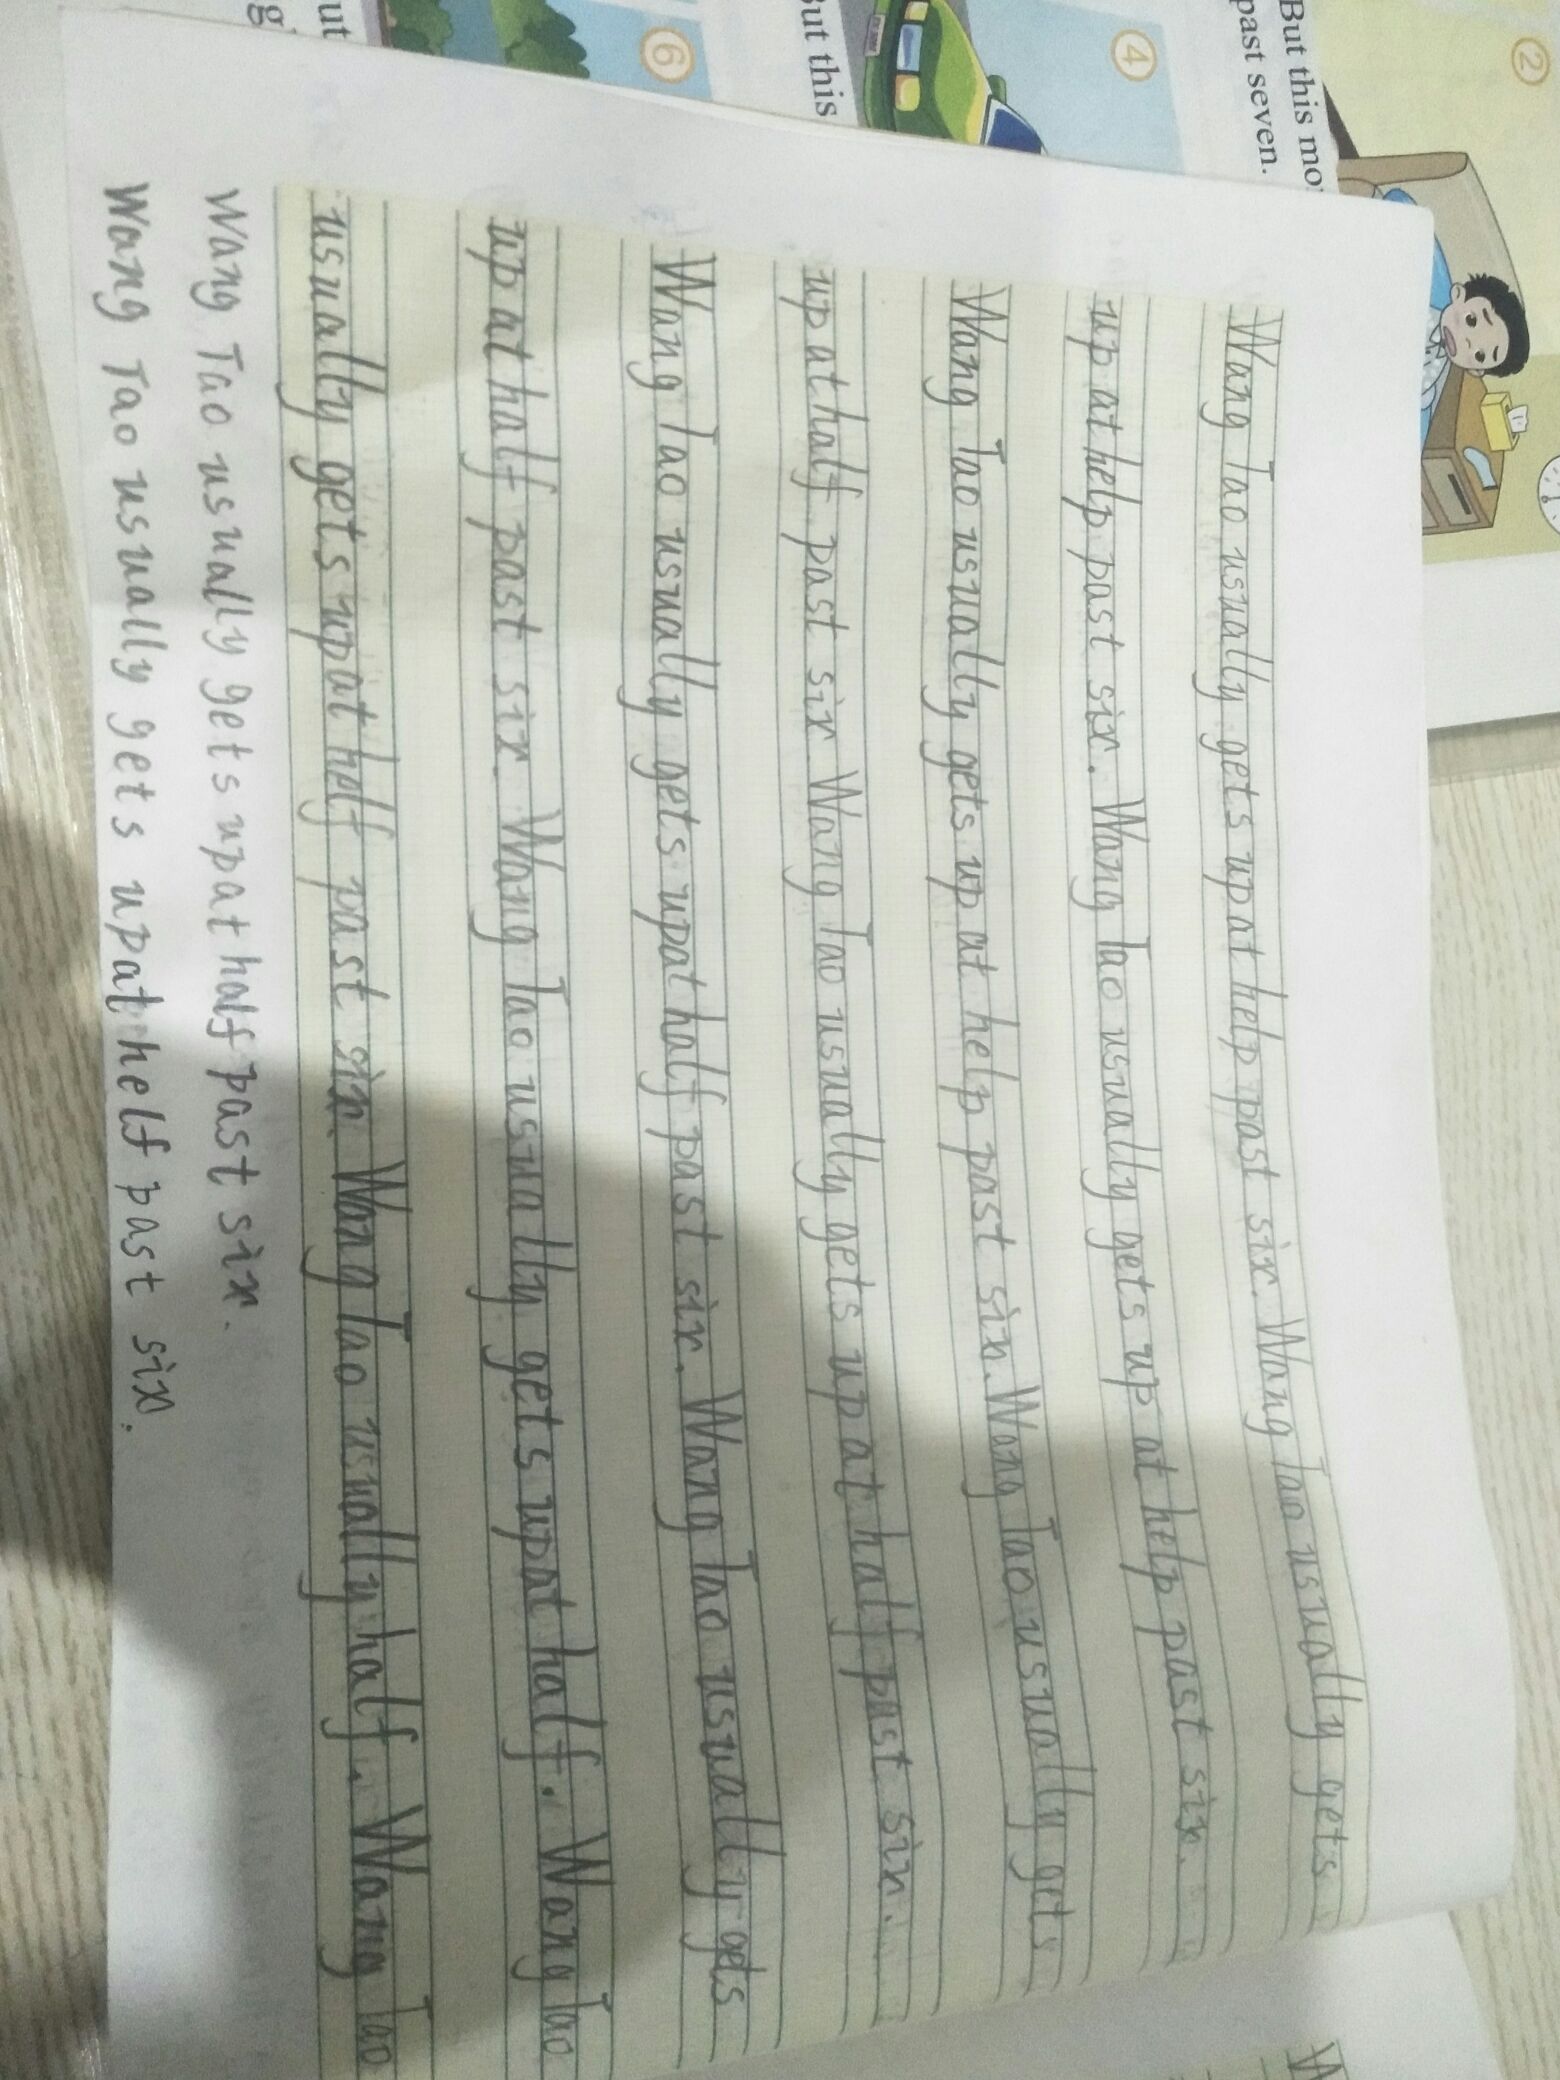 ②
But this mo
past seven.
④
But this
⑥
ut
g
Wang Tao usually gets up at help past six. Wang Tao usually gets
up at help past six. Wang Tao usually gets up at help past six.
Wang Tao usually gets up at help past six. Wang Tao usually gets
up at half past six Wang Tao usually gets up at half past six.
Wang Tao usually gets up at half past six. Wang Tao usually gets
up at half past six. Wang Tao usually gets up at half. Wang Tao
usually gets up at helf past six Wang Tao usually half. Wang Tao
Wang Tao usually gets up at half past six.
Wang Tao usually gets up at helf past six.
W